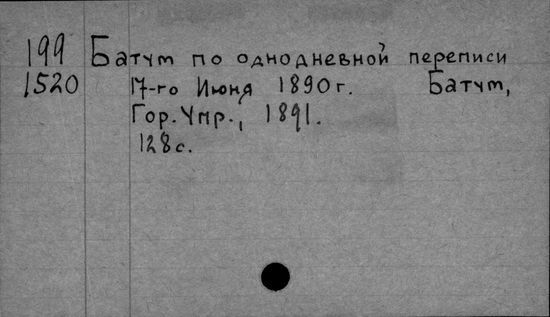 199 Батум по однодневной переписи
1520 17-го Июня 1890 г. Батум,
Гор. Упр., 1891.
128 с.